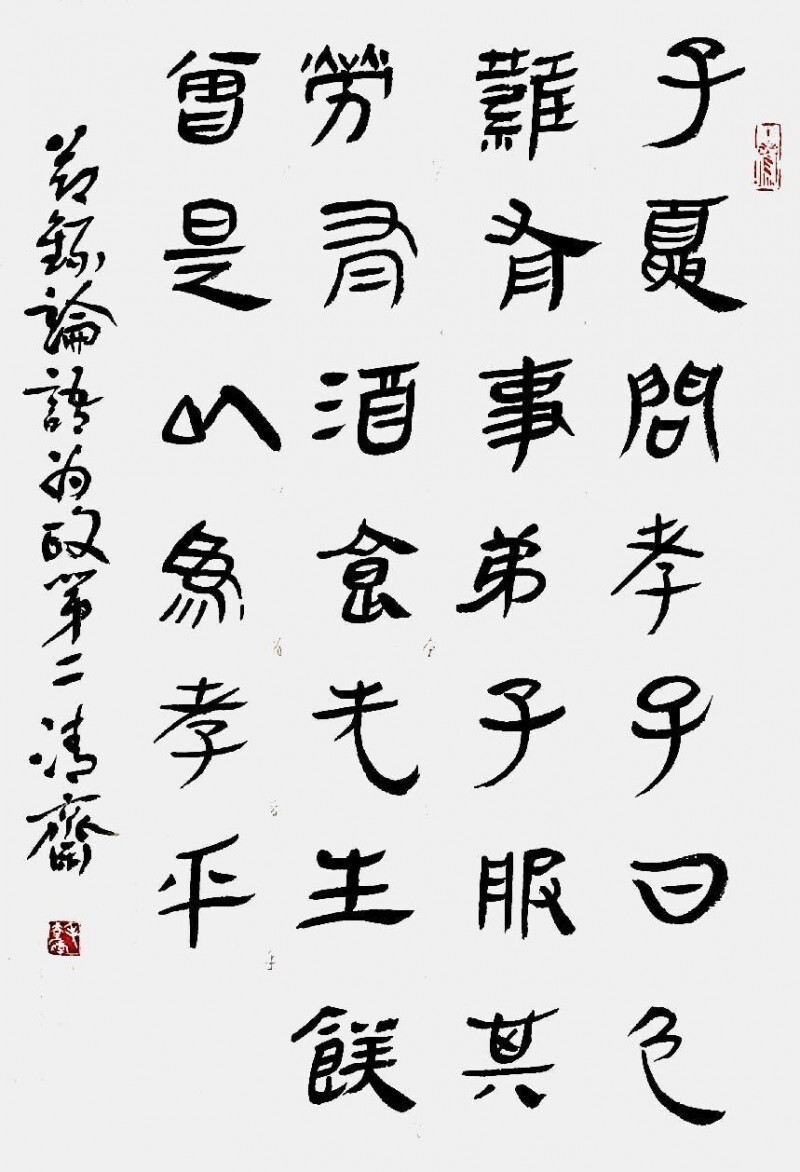 子夏問孝子曰色
難有事弟子服其
勞有酒食先生饌
曾是以為孝乎
節錄論語為政第二 清齋